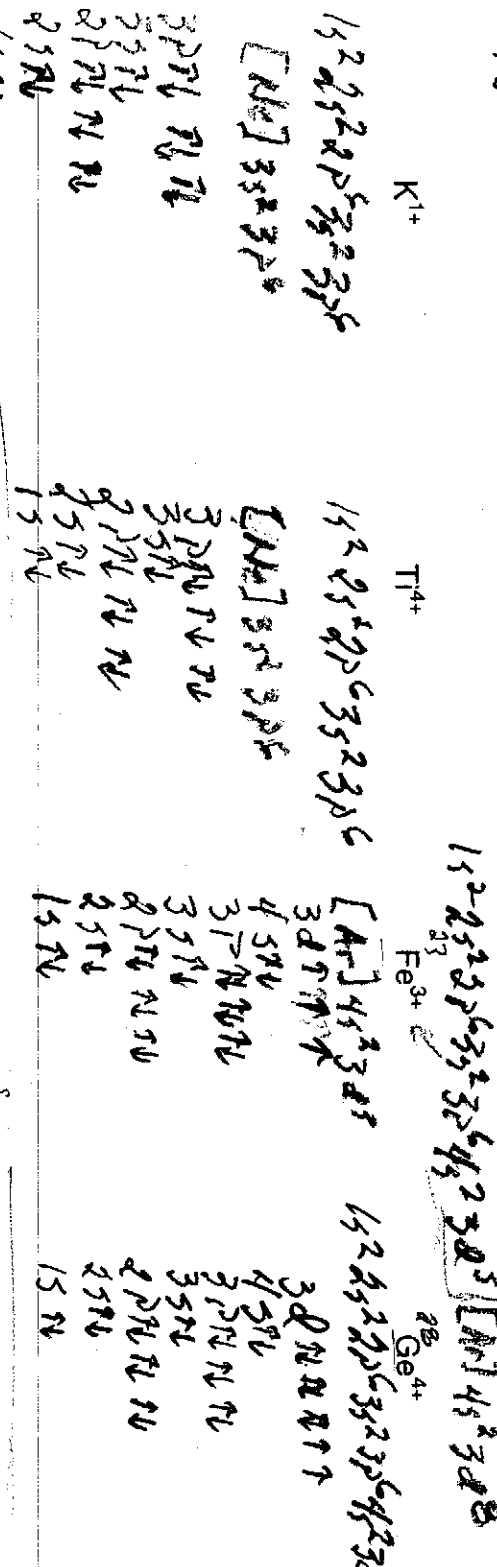 K¹⁺
1s² 2s² 2p⁶ 3s² 3p⁶
[Ne] 3s² 3p⁶
3p ↑↓ ↑↓ ↑↓
3s ↑↓
2p ↑↓ ↑↓ ↑↓
2s ↑↓
Ti⁴⁺
1s² 2s² 2p⁶ 3s² 3p⁶
[Ne] 3s² 3p⁶
3p ↑↓ ↑↓ ↑↓
3s ↑↓
2p ↑↓ ↑↓ ↑↓
2s ↑↓
1s ↑↓
1s² 2s² 2p⁶ 3s² 3p⁶ 4s² 3d³
23
Fe³⁺
[Ar] 4s² 3d³
3d ↑ ↑ ↑
4s ↑↓
3p ↑↓ ↑↓ ↑↓
3s ↑↓
2p ↑↓ ↑↓ ↑↓
2s ↑↓
1s ↑↓
[Ar] 4s² 3d⁸
28
Ge⁴⁺
1s² 2s² 2p⁶ 3s² 3p⁶ 4s² 3
3d ↑↓ ↑↓ ↑↓ ↑ ↑
4s ↑↓
3p ↑↓ ↑↓ ↑↓
3s ↑↓
2p ↑↓ ↑↓ ↑↓
2s ↑↓
1s ↑↓